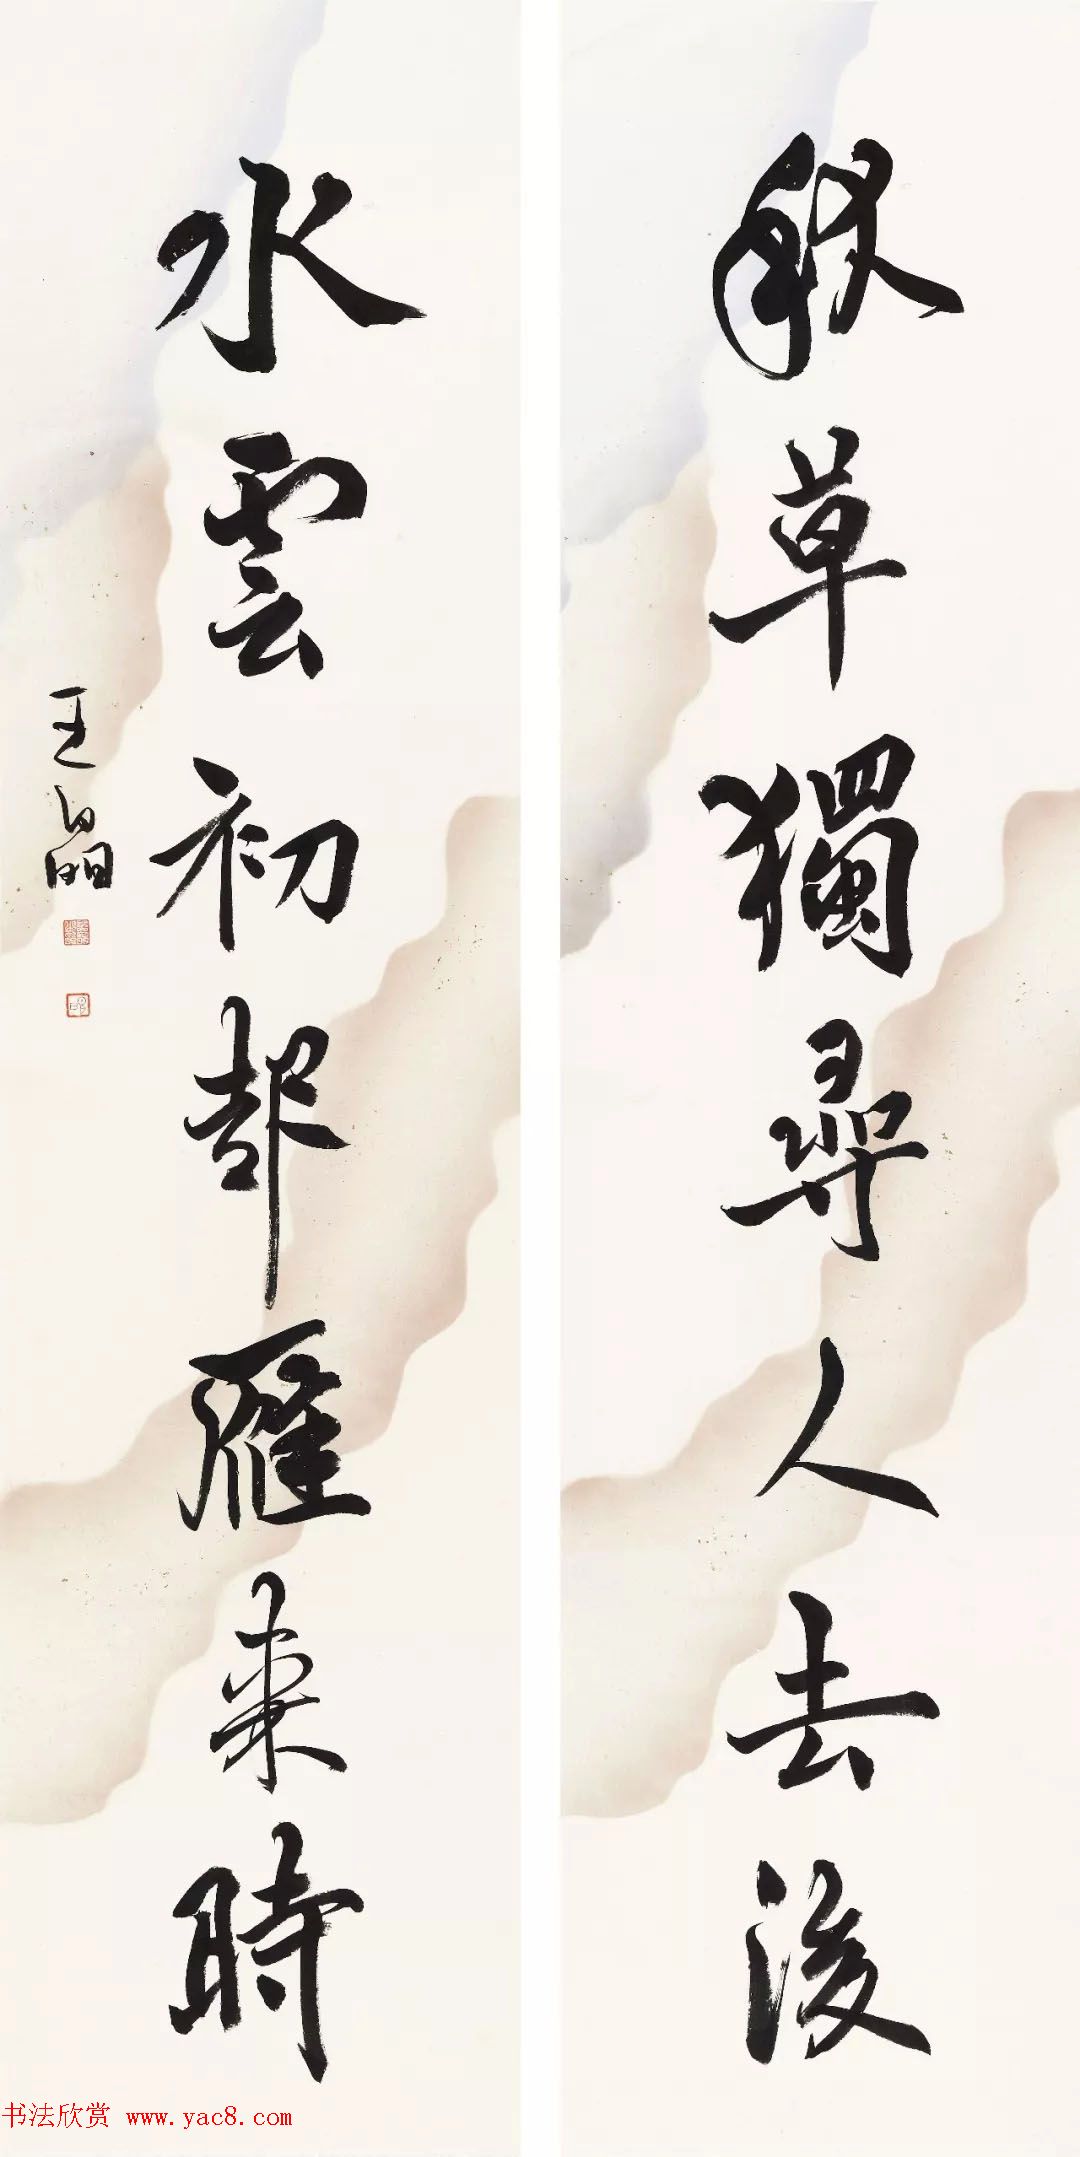 秋草獨尋人去後
水雲初雁來時
王晶
书法欣赏 www.yac8.com